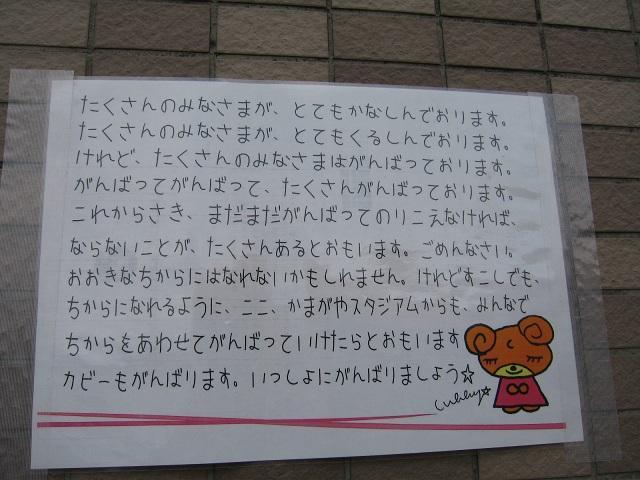 たくさんのみなさまが、とてもかなしんでおります。
たくさんのみなさまが、とてもくるしんでおります。
けれど、たくさんのみなさまはがんばっております。
がんばってがんばって、たくさんがんばっております。
これからさき、まだまだがんばってのりこえなければ、
ならないことが、たくさんあるとおもいます。ごめんなさい。
おおきなちからにはなれないかもしれません。けれどすこしでも、
ちからになれるように、ここ、かまがやスタジアムからも、みんなで
ちからをあわせてがんばっていけたらとおもいます
カビーもがんばります。いっしょにがんばりましょう☆
Cubby☆